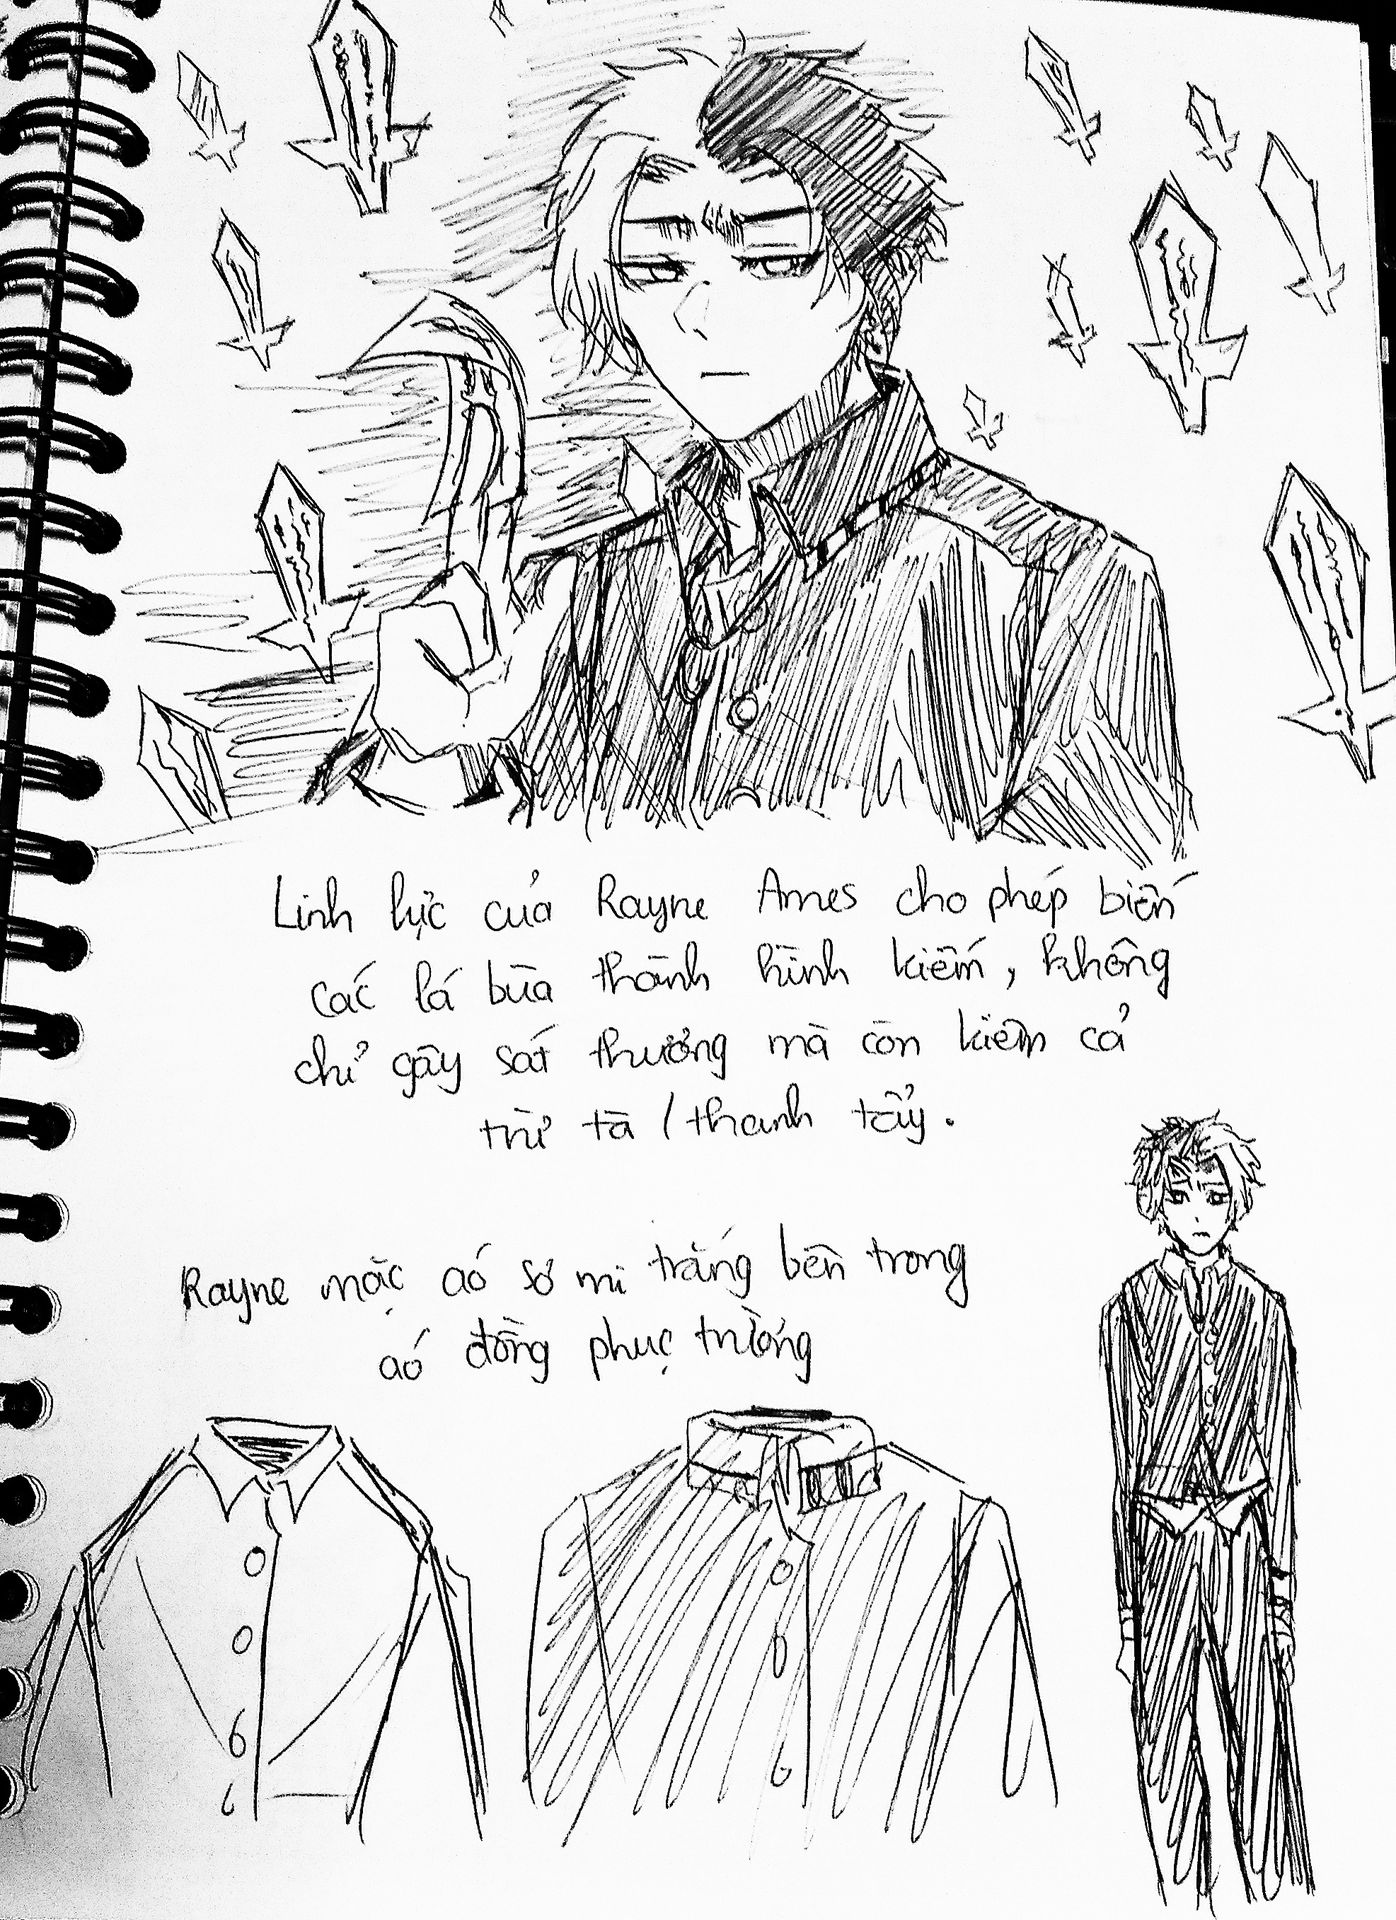 Linh lực của Rayne Ames cho phép biến
các lá bùa thành hình kiếm, không
chỉ gây sát thương mà còn kiêm cả
trừ tà / thanh tẩy.
Rayne mặc áo sơ mi trắng bên trong
áo đồng phục trường